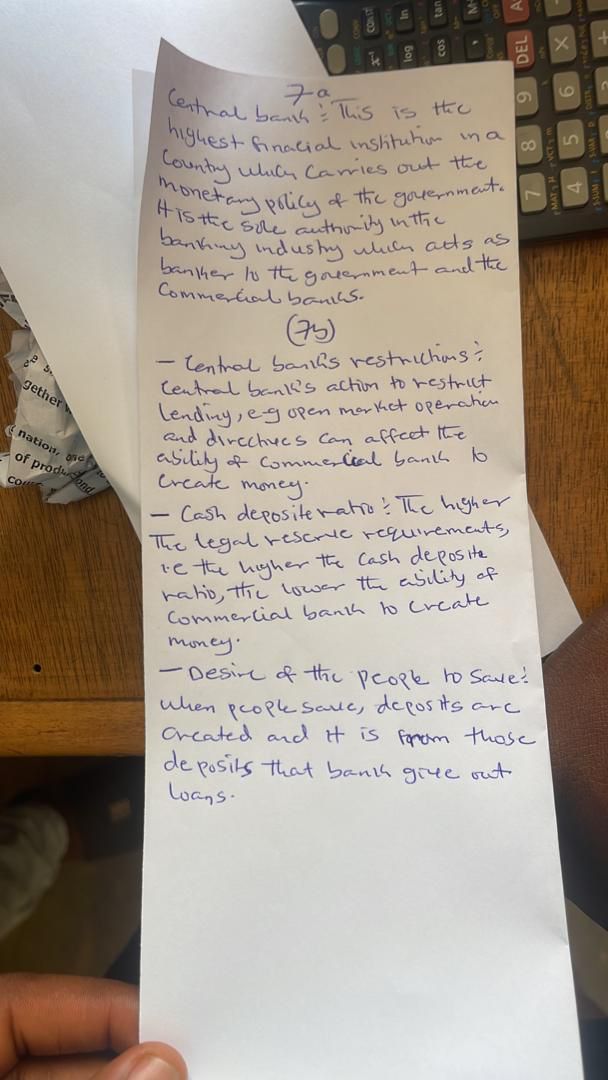 7a
Central bank: This is the
highest finacial institution in a
Country which Carries out the
monetary policy of the government.
It is the sole authority in the
banking industry which acts as
banker to the government and the
Commercial banks.
(7b)
- Central bank's restrictions:
Central bank's action to restrict
lending, e.g open market operation
and directives can affect the
ability of commercial bank to
Create money.
- Cash deposite ratio: The higher
The legal reserve requirements,
i.e the higher the Cash deposite
ratio, the lower the ability of
Commercial bank to Create
money.
- Desire of the people to save:
when people save, deposits are
Created and it is from those
deposits that bank give out
loans.
gether
nation,
of produ
and
DEL
AC
CONST
ln
log
tan
cos
x⁻¹
M+
7
8
9
4
5
6
X
+